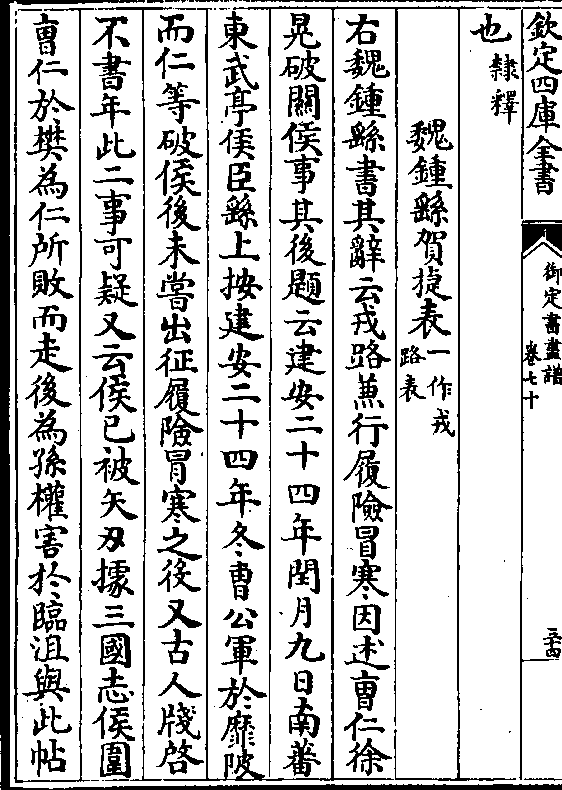 欽定四庫全書
御定書畫譜
卷七十
三十四
也隸釋
魏鍾繇賀捷表一作戎路表
右魏鍾繇書其辭云戎路兼行履險冒寒因述曹仁徐
晃破關侯事其後題云建安二十四年閏月九日南蕃
東武亭侯臣繇上按建安二十四年冬曹公軍於靡陂
而仁等破侯後未嘗出征履險冒寒之役又古人牋啓
不書年此二事可疑又云侯已被矢刃據三國志侯圍
曹仁於樊為仁所敗而走後為孫權害於臨沮與此帖